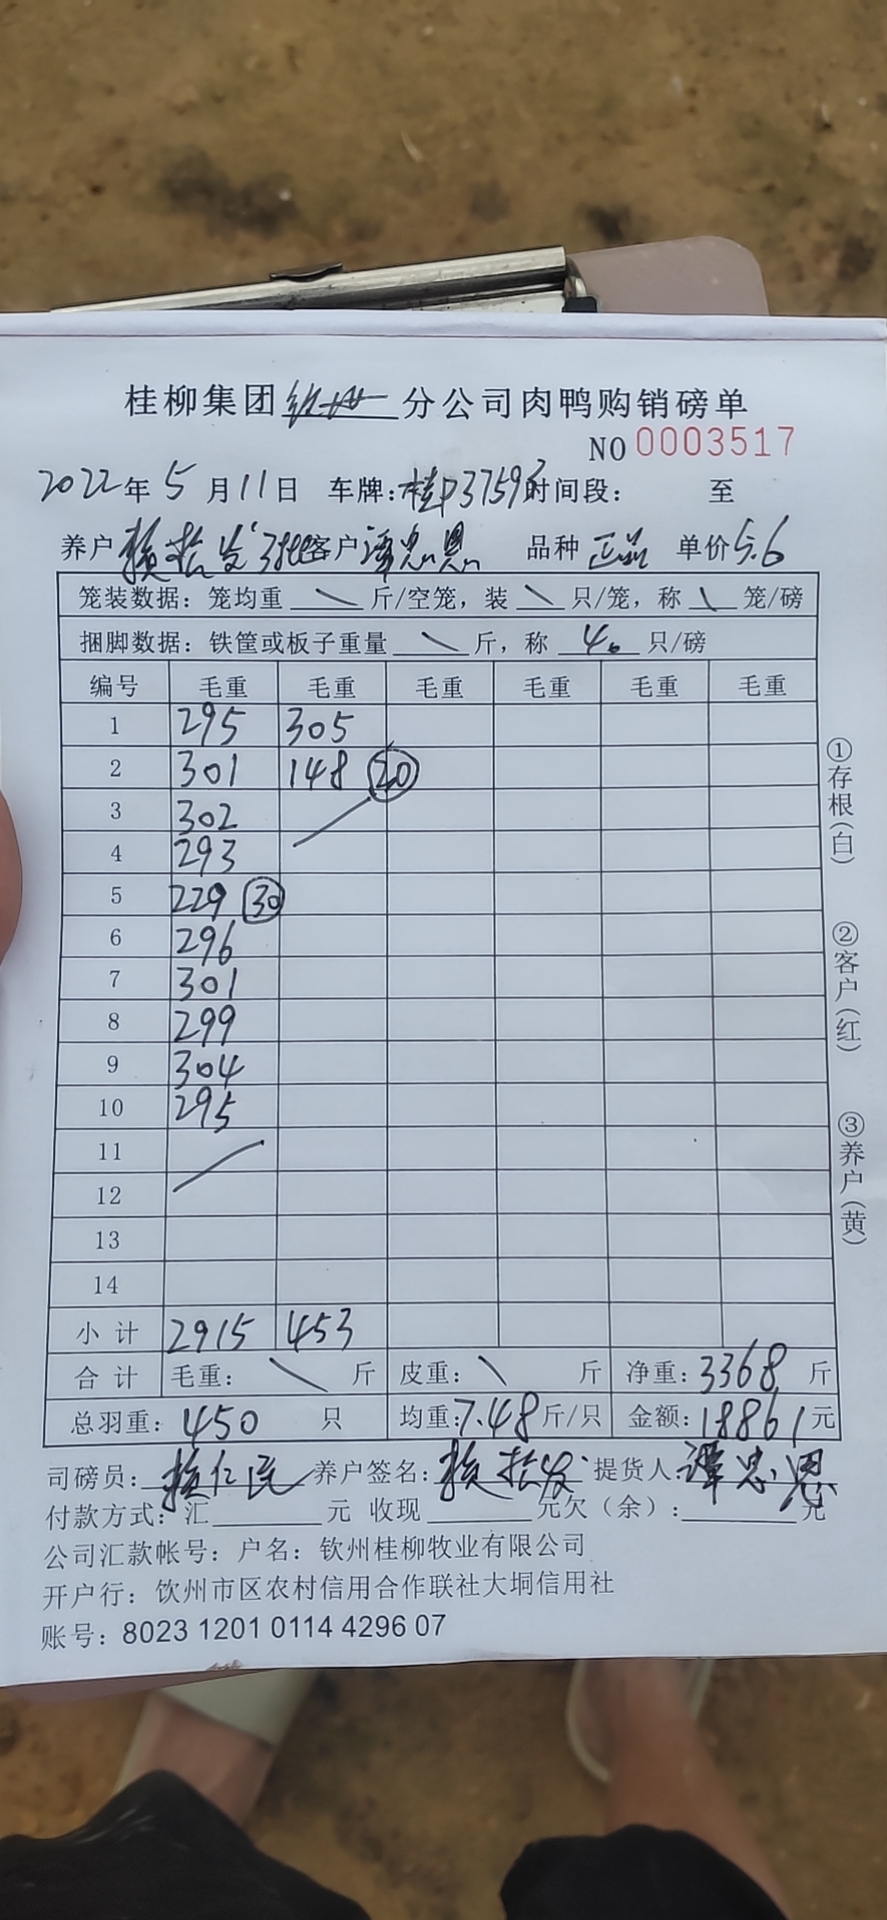 桂柳集团 分公司肉鸭购销磅单
NO 0003517
2022年5月11日 车牌:桂P3759 时间段: 至
养户 客户 谭忠恩 品种 正品 单价 5.6
笼装数据: 笼均重 \ 斤/空笼, 装 \ 只/笼, 称 \ 笼/磅
捆脚数据: 铁筐或板子重量 \ 斤, 称 40 只/磅
编号 毛重 毛重 毛重 毛重 毛重 毛重
1 295 305
2 301 148 20
3 302
4 293
5 229 30
6 296
7 301
8 299
9 304
10 295
11
12
13
14
小计 2915 453
合计 毛重: \ 斤 皮重: \ 斤 净重: 3368 斤
总羽重: 450 只 均重: 7.48 斤/只 金额: 18861 元
司磅员: 赖仁 养户签名: 赖 提货人: 谭忠恩
付款方式: 汇 元 收现 元欠(余): 元
公司汇款帐号: 户名: 钦州桂柳牧业有限公司
开户行: 钦州市区农村信用合作联社大垌信用社
账号: 8023 1201 0114 4296 07
①存根(白)
②客户(红)
③养户(黄)